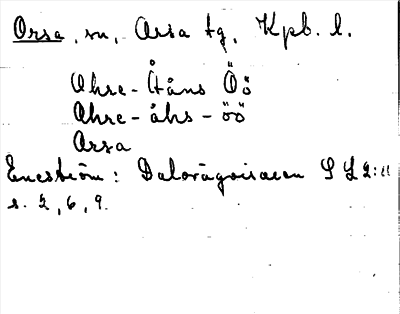 Orsa, sn, Orsa tg, Kpb. l.
Ohre-Åtåns Öö
Ohre-åhs-öö
Orsa
Eneström: Dalarägoisaeen SL 2:11
s. 2, 6, 9.